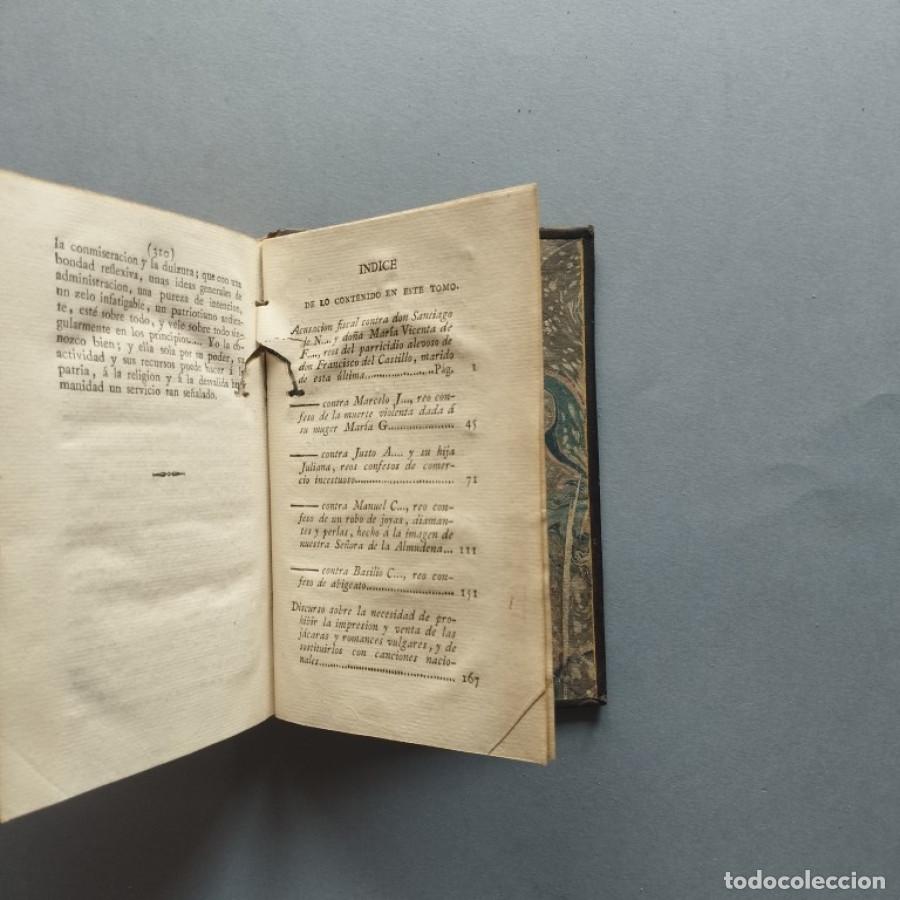 (310)
la conmiseracion y la dulzura; que con una
bondad reflexiva, unas ideas generales de
administracion, una pureza de intencion,
un zelo infatigable, un patriotismo ardien-
te, esté sobre todo, y vele sobre todo sin-
gularmente en los principios.... Yo la co-
nozco bien; y ella sola por su poder, su
actividad y sus recursos puede hacer á la
patria, á la religion y á la desvalida hu-
manidad un servicio tan señalado.
INDICE
DE LO CONTENIDO EN ESTE TOMO.
Acusacion fiscal contra don Santiago
de N... y doña María Vicenta de
F..., reos del parricidio alevoso de
don Francisco del Castillo, marido
de esta última..................Pág. 1
—— contra Marcelo J..., reo con-
feso de la muerte violenta dada á
su muger María G.................... 45
—— contra Justo A.... y su hija
Juliana, reos confesos de comer-
cio incestuoso........................ 71
—— contra Manuel C..., reo con-
feso de un robo de joyas, diaman-
tes y perlas, hecho á la imagen de
nuestra Señora de la Almudena... 111
—— contra Basilio C..., reo con-
feso de abigeato..................... 151
Discurso sobre la necesidad de pro-
hibir la impresion y venta de las
jácaras y romances vulgares, y de
sostituirlos con canciones nacio-
nales................................. 167
todocoleccion